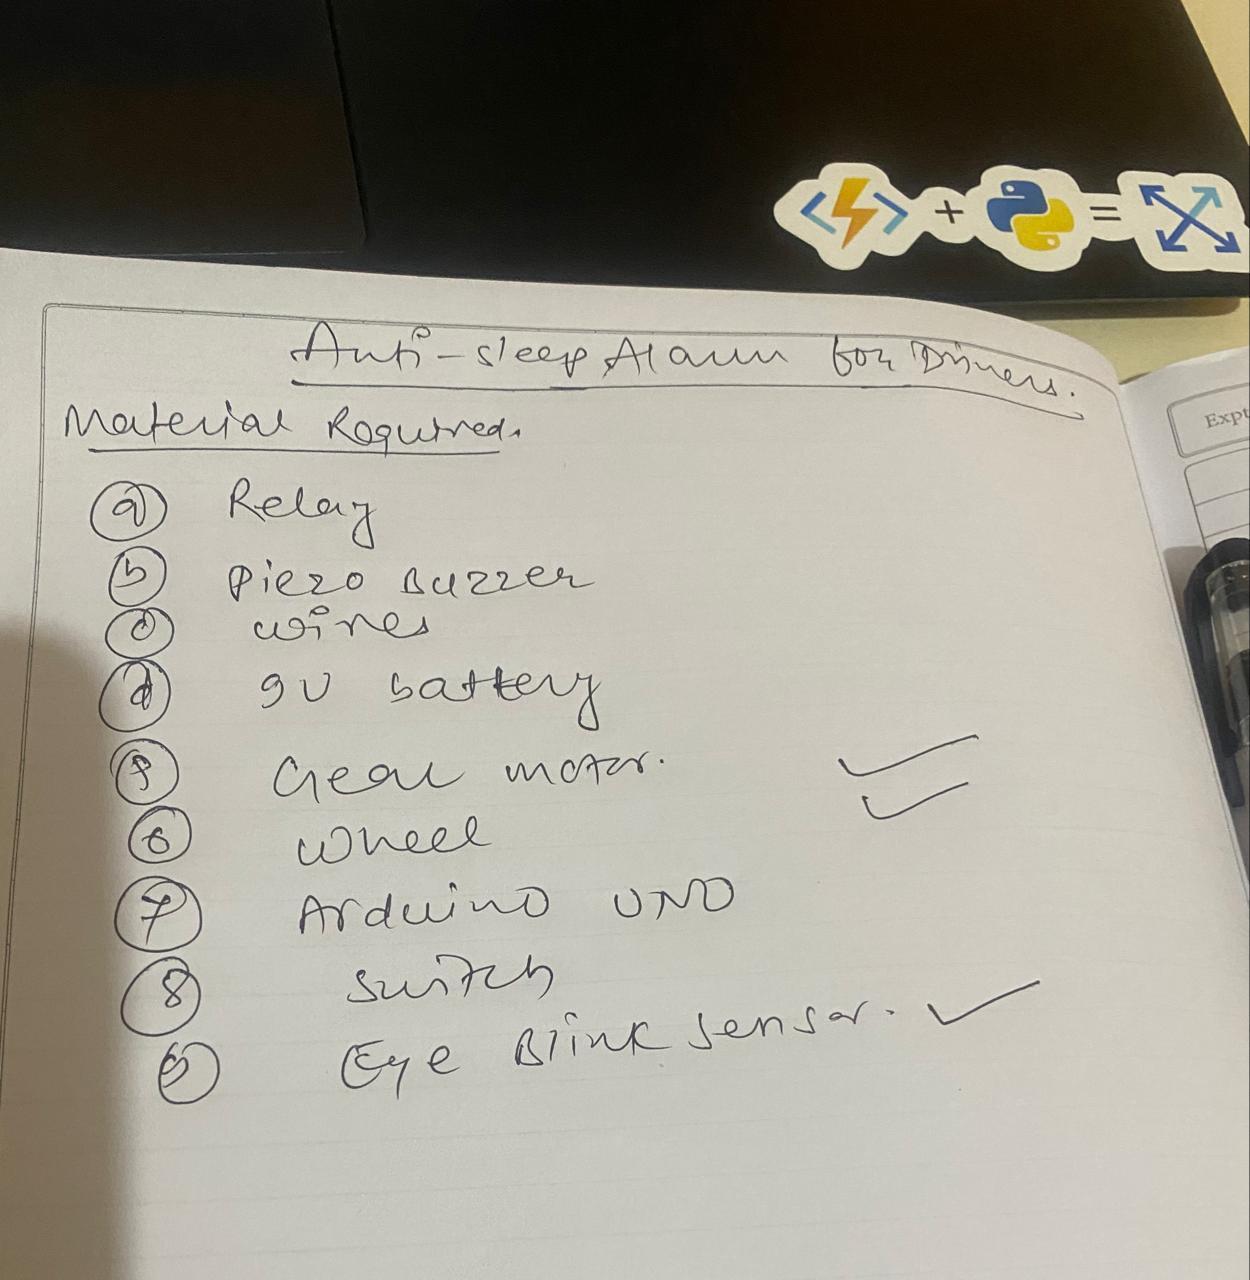 Anti-sleep Alarm for Drivers.
Material Required.
a Relay
b Piezo Buzzer
c wires
d 9V battery
5 Gear motor.
6 Wheel
7 Arduino UNO
8 Switch
9 Eye Blink sensor.
+ =
Expt